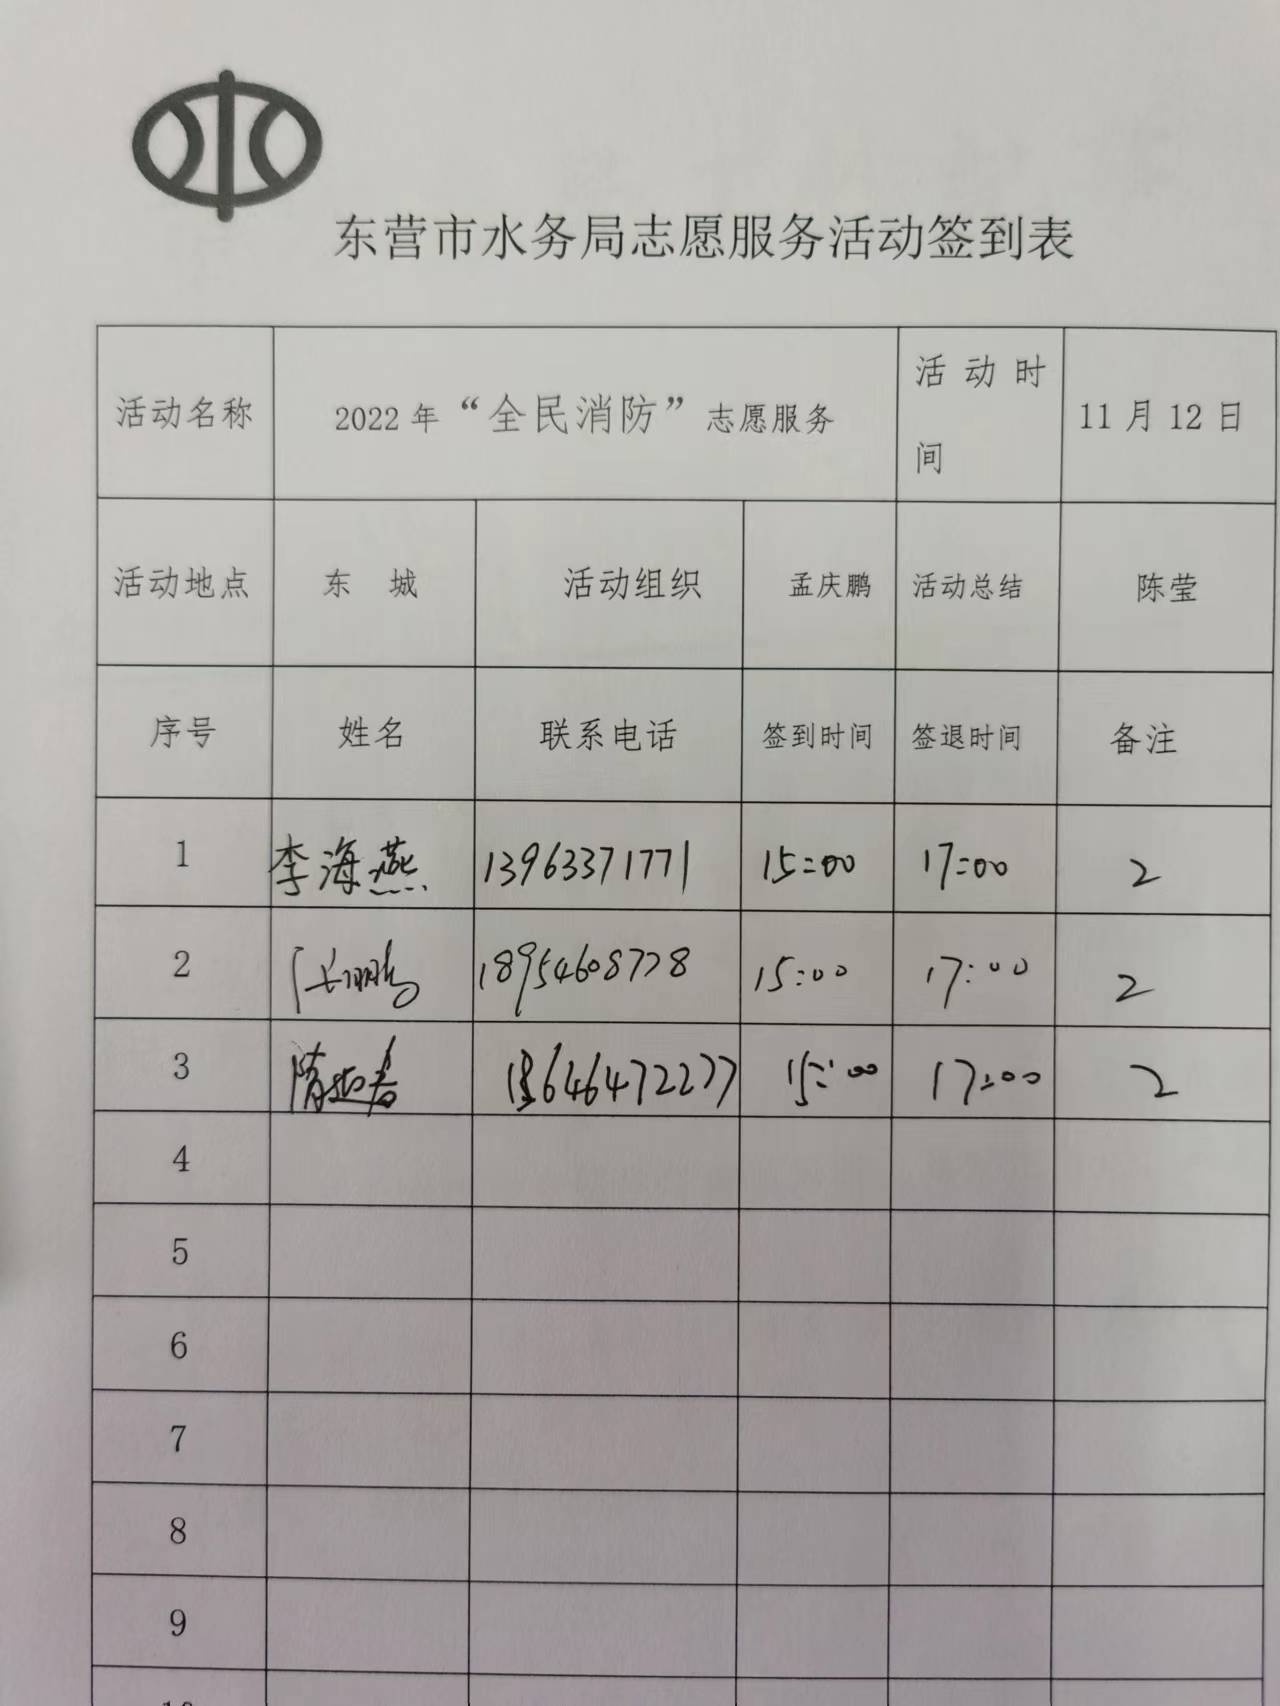 东营市水务局志愿服务活动签到表
活动名称 2022年“全民消防”志愿服务 活动时间 11月12日
活动地点 东 城 活动组织 孟庆鹏 活动总结 陈莹
序号 姓名 联系电话 签到时间 签退时间 备注
1 李海燕 13963371771 15:00 17:00 2
2 18954608778 15:00 17:00 2
3 13646472277 15:00 17:00 2
4
5
6
7
8
9
10